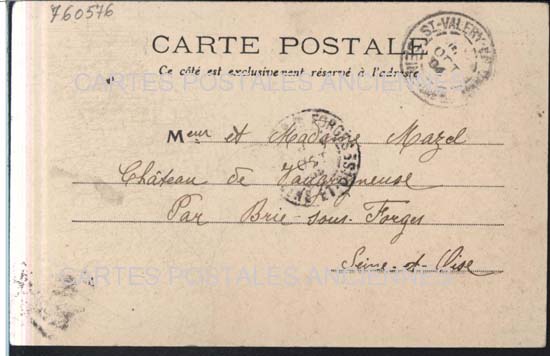 760576
CARTE POSTALE
Ce côté est exclusivement réservé à l'adresse
ST-VALERY-EN
OCT
04
CARTES POSTALES ANCIENNES
FORGES
Meur et Madame Mazel
Château de
Par Brie-sous-Forges
Seine-et-Oise
SEINE-ET-OISE
CARTES POSTALES ANCIENNES